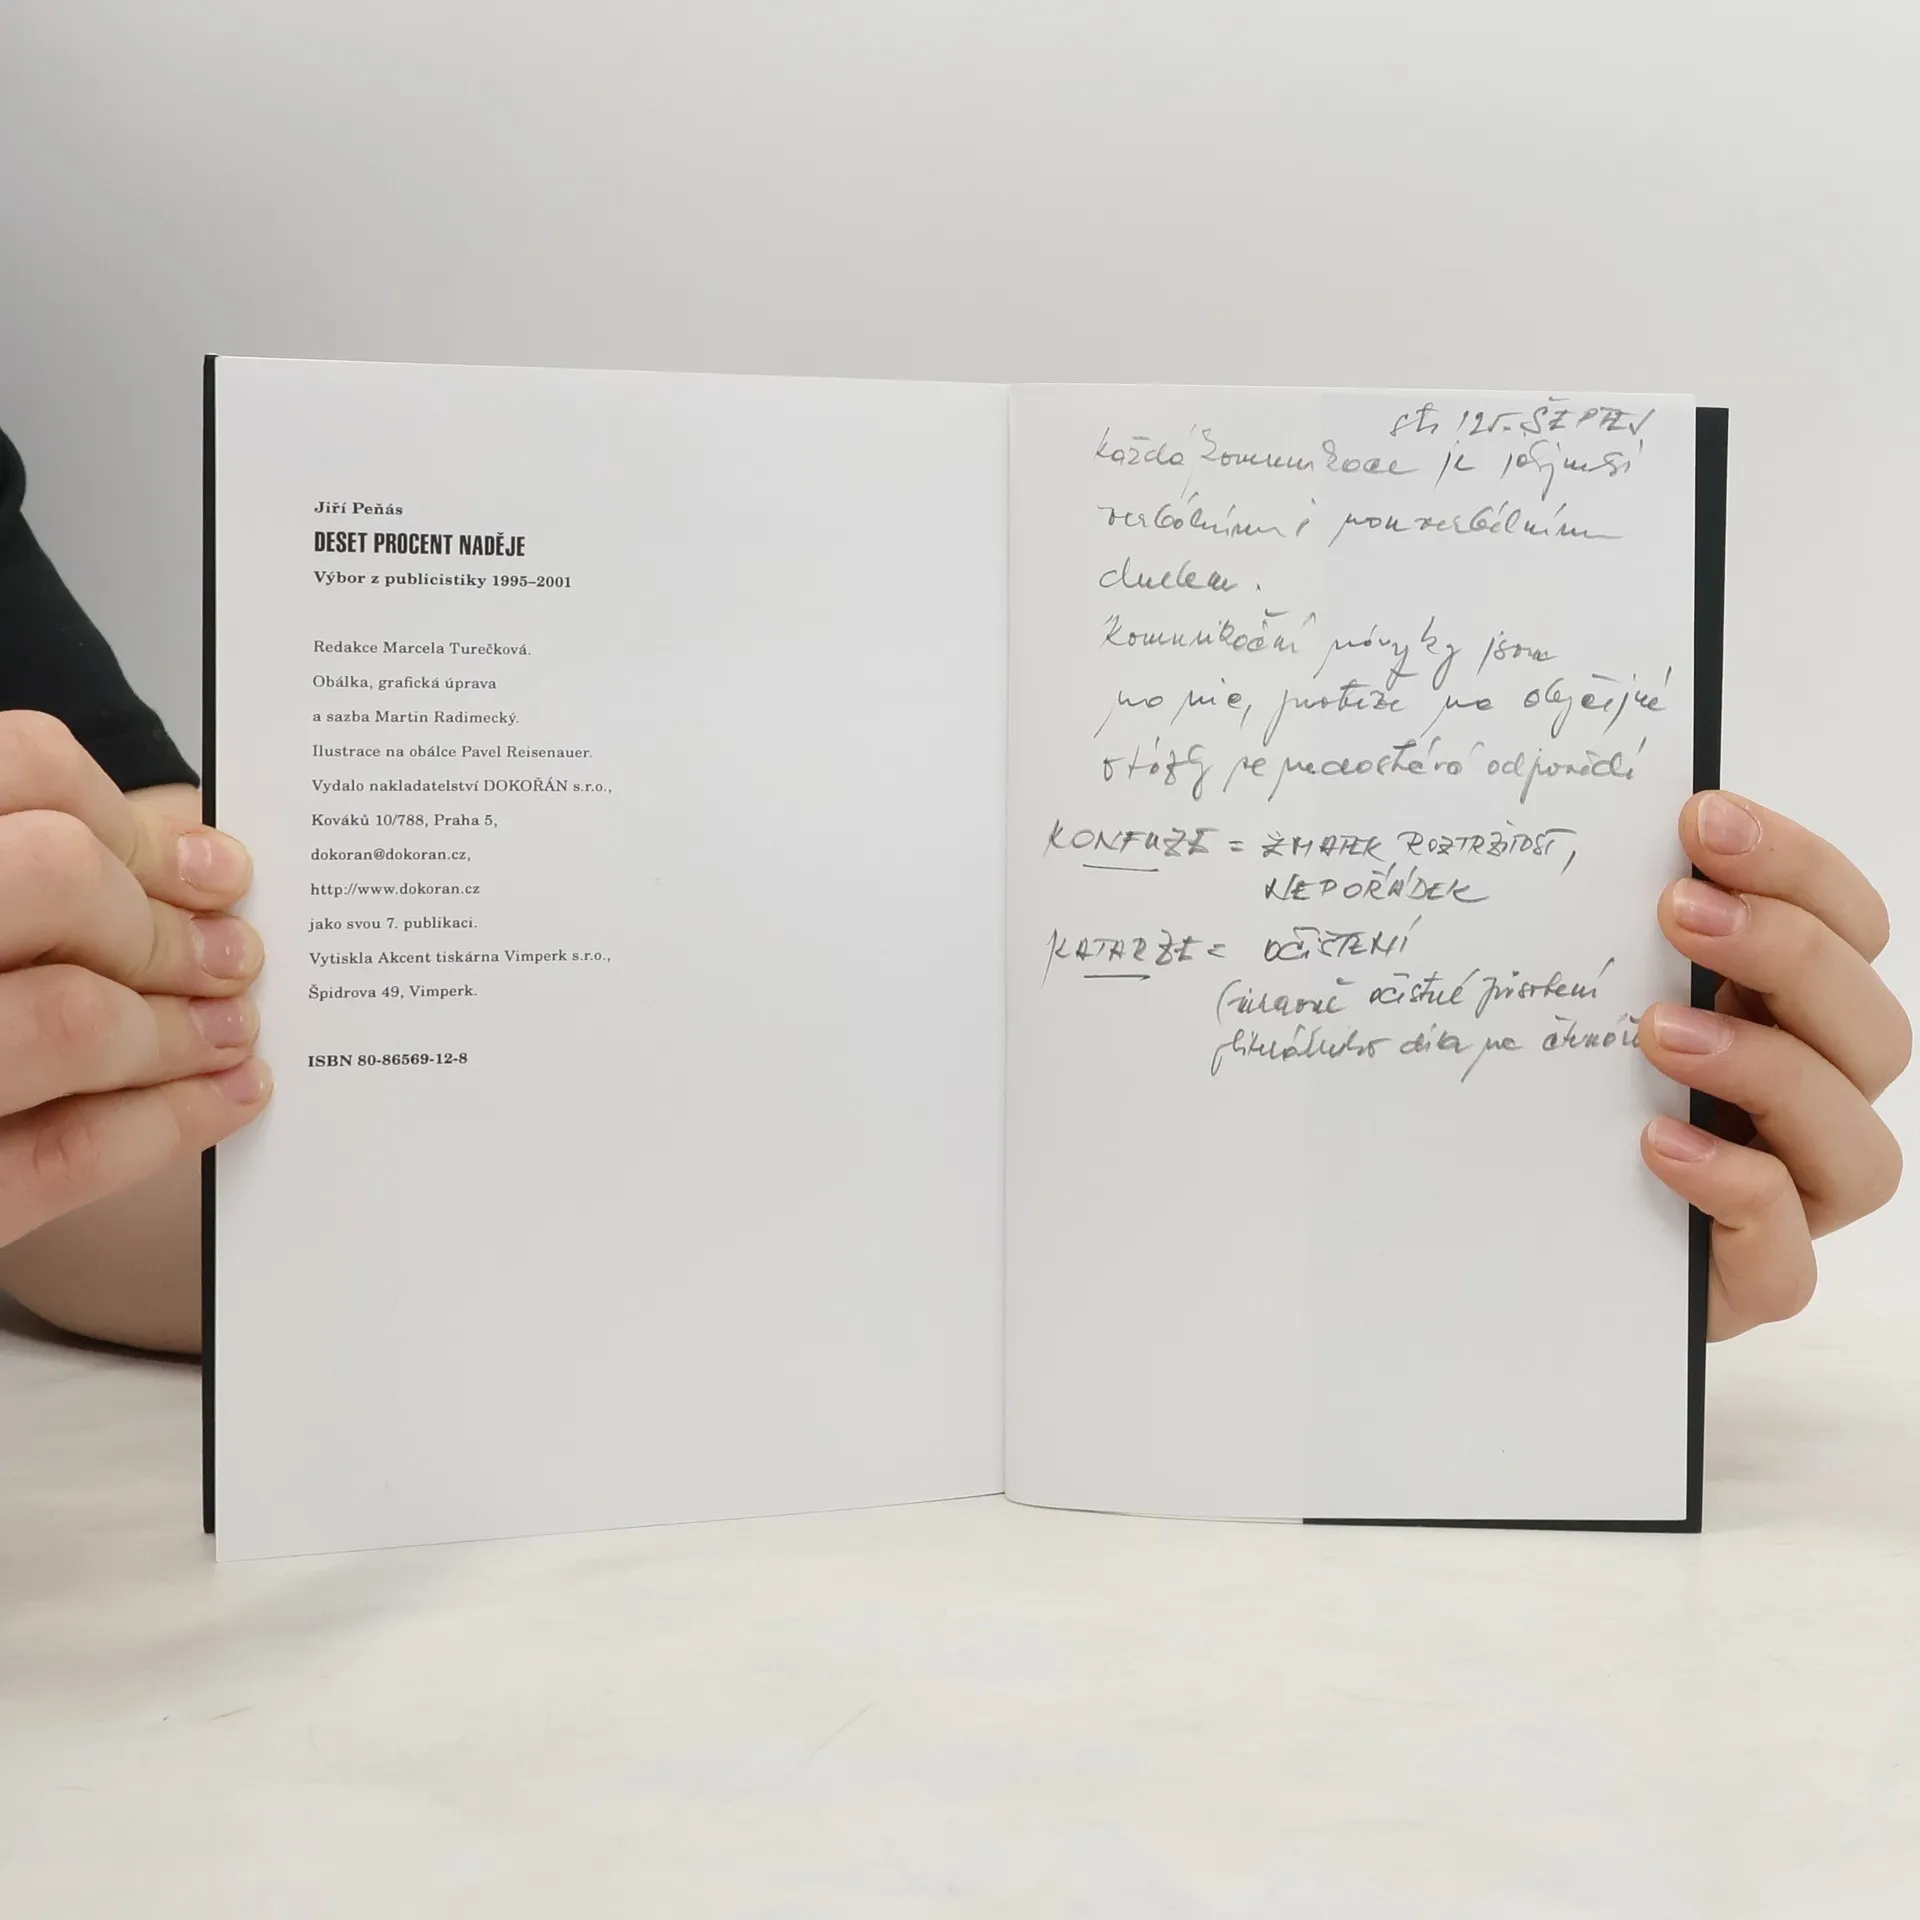 Jiří Peňás
DESET PROCENT NADĚJE
Výbor z publicistiky 1995–2001
Redakce Marcela Turečková.
Obálka, grafická úprava
a sazba Martin Radimecký.
Ilustrace na obálce Pavel Reisenauer.
Vydalo nakladatelství DOKOŘÁN s.r.o.,
Kováků 10/788, Praha 5,
dokoran@dokoran.cz,
http://www.dokoran.cz
jako svou 7. publikaci.
Vytiskla Akcent tiskárna Vimperk s.r.o.,
Špidrova 49, Vimperk.
ISBN 80-86569-12-8
str 125.
každá komunikace je
verbálním i nonverbálním
duelem.
Komunikační návyky jsou
na nic, protože na obyčejné
otázky se nedostává odpovědí
KONFUZE = ZMATEK, ROZTRŽITOST,
NEPOŘÁDEK
KATARZE = OČIŠTENÍ
(mravně očistné působení
literárního díla na čtenáře